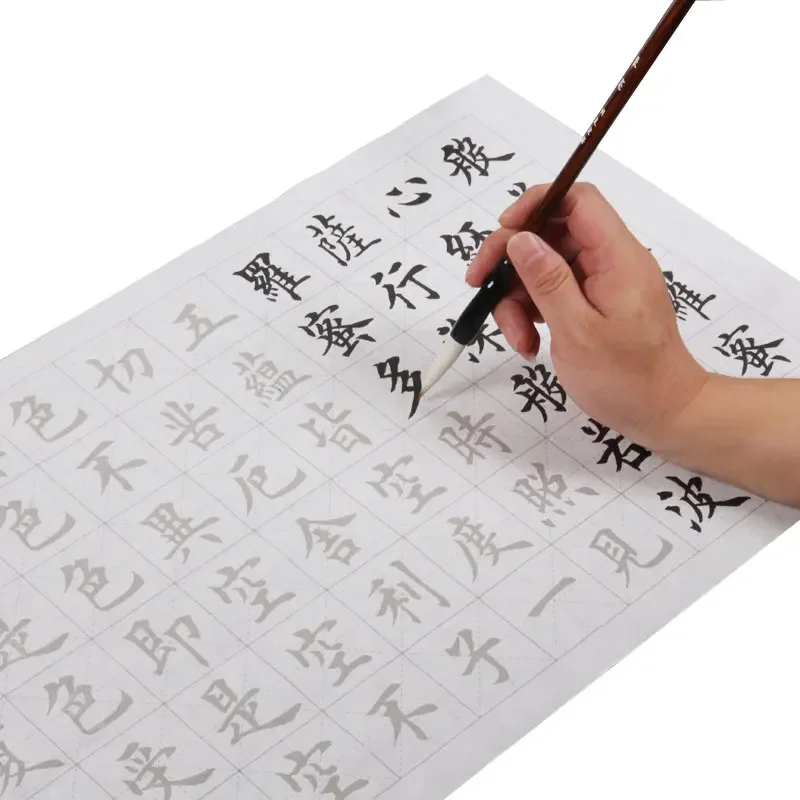 般羅蜜
心經
薩行深般若波
羅蜜多時照見
五蘊皆空度一
切苦厄舍利子
色不異空空不
色色即是空
是色受